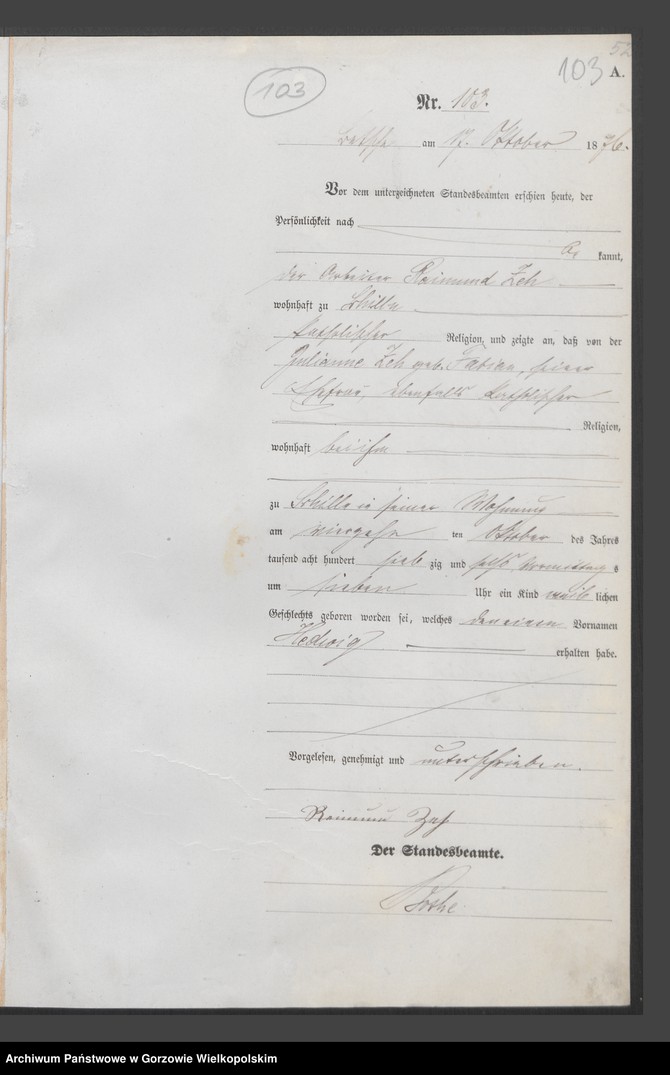 52
103 A.
103
Nr. 103.
Betsche am 17. Oktober 1876.
Vor dem unterzeichneten Standesbeamten erschien heute, der
Persönlichkeit nach
be kannt,
der Arbeiter Reimund Zeh
wohnhaft zu Schilln
katholischer Religion, und zeigte an, daß von der
Julianne Zeh geb. Fabian, seiner
Ehefrau, ebenfalls katholischer
Religion,
wohnhaft bei ihm
zu Schilln in seiner Wohnung
am vierzehn ten Oktober des Jahres
tausend acht hundert sieb zig und sechs Vormittag s
um sieben Uhr ein Kind weib lichen
Geschlechts geboren worden sei, welches den einen Vornamen
Hedwig erhalten habe.
Vorgelesen, genehmigt und unterschrieben.
Reimund Zeh
Der Standesbeamte.
Archiwum Państwowe w Gorzowie Wielkopolskim